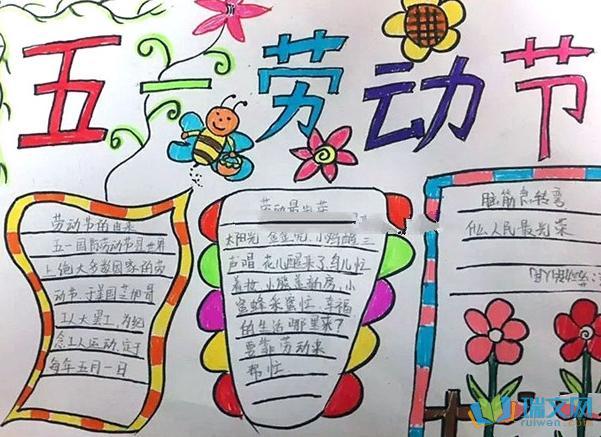 五一劳动节
劳动节的由来
五一国际劳动节是世界
上绝大多数国家的劳
动节,于美国芝加哥
工人大罢工,为纪
念工人运动,定于
每年五月一日
劳动最光荣
太阳光 金亮亮,小鸡唱三
声唱 花儿醒来了,鸟儿忙
着妆 小 新房,小
蜜蜂采蜜忙 幸福
的生活哪里来了
要靠劳动来
帮忙
脑筋急转弯
什么人民最光荣
瑞文网
ruiwen.com